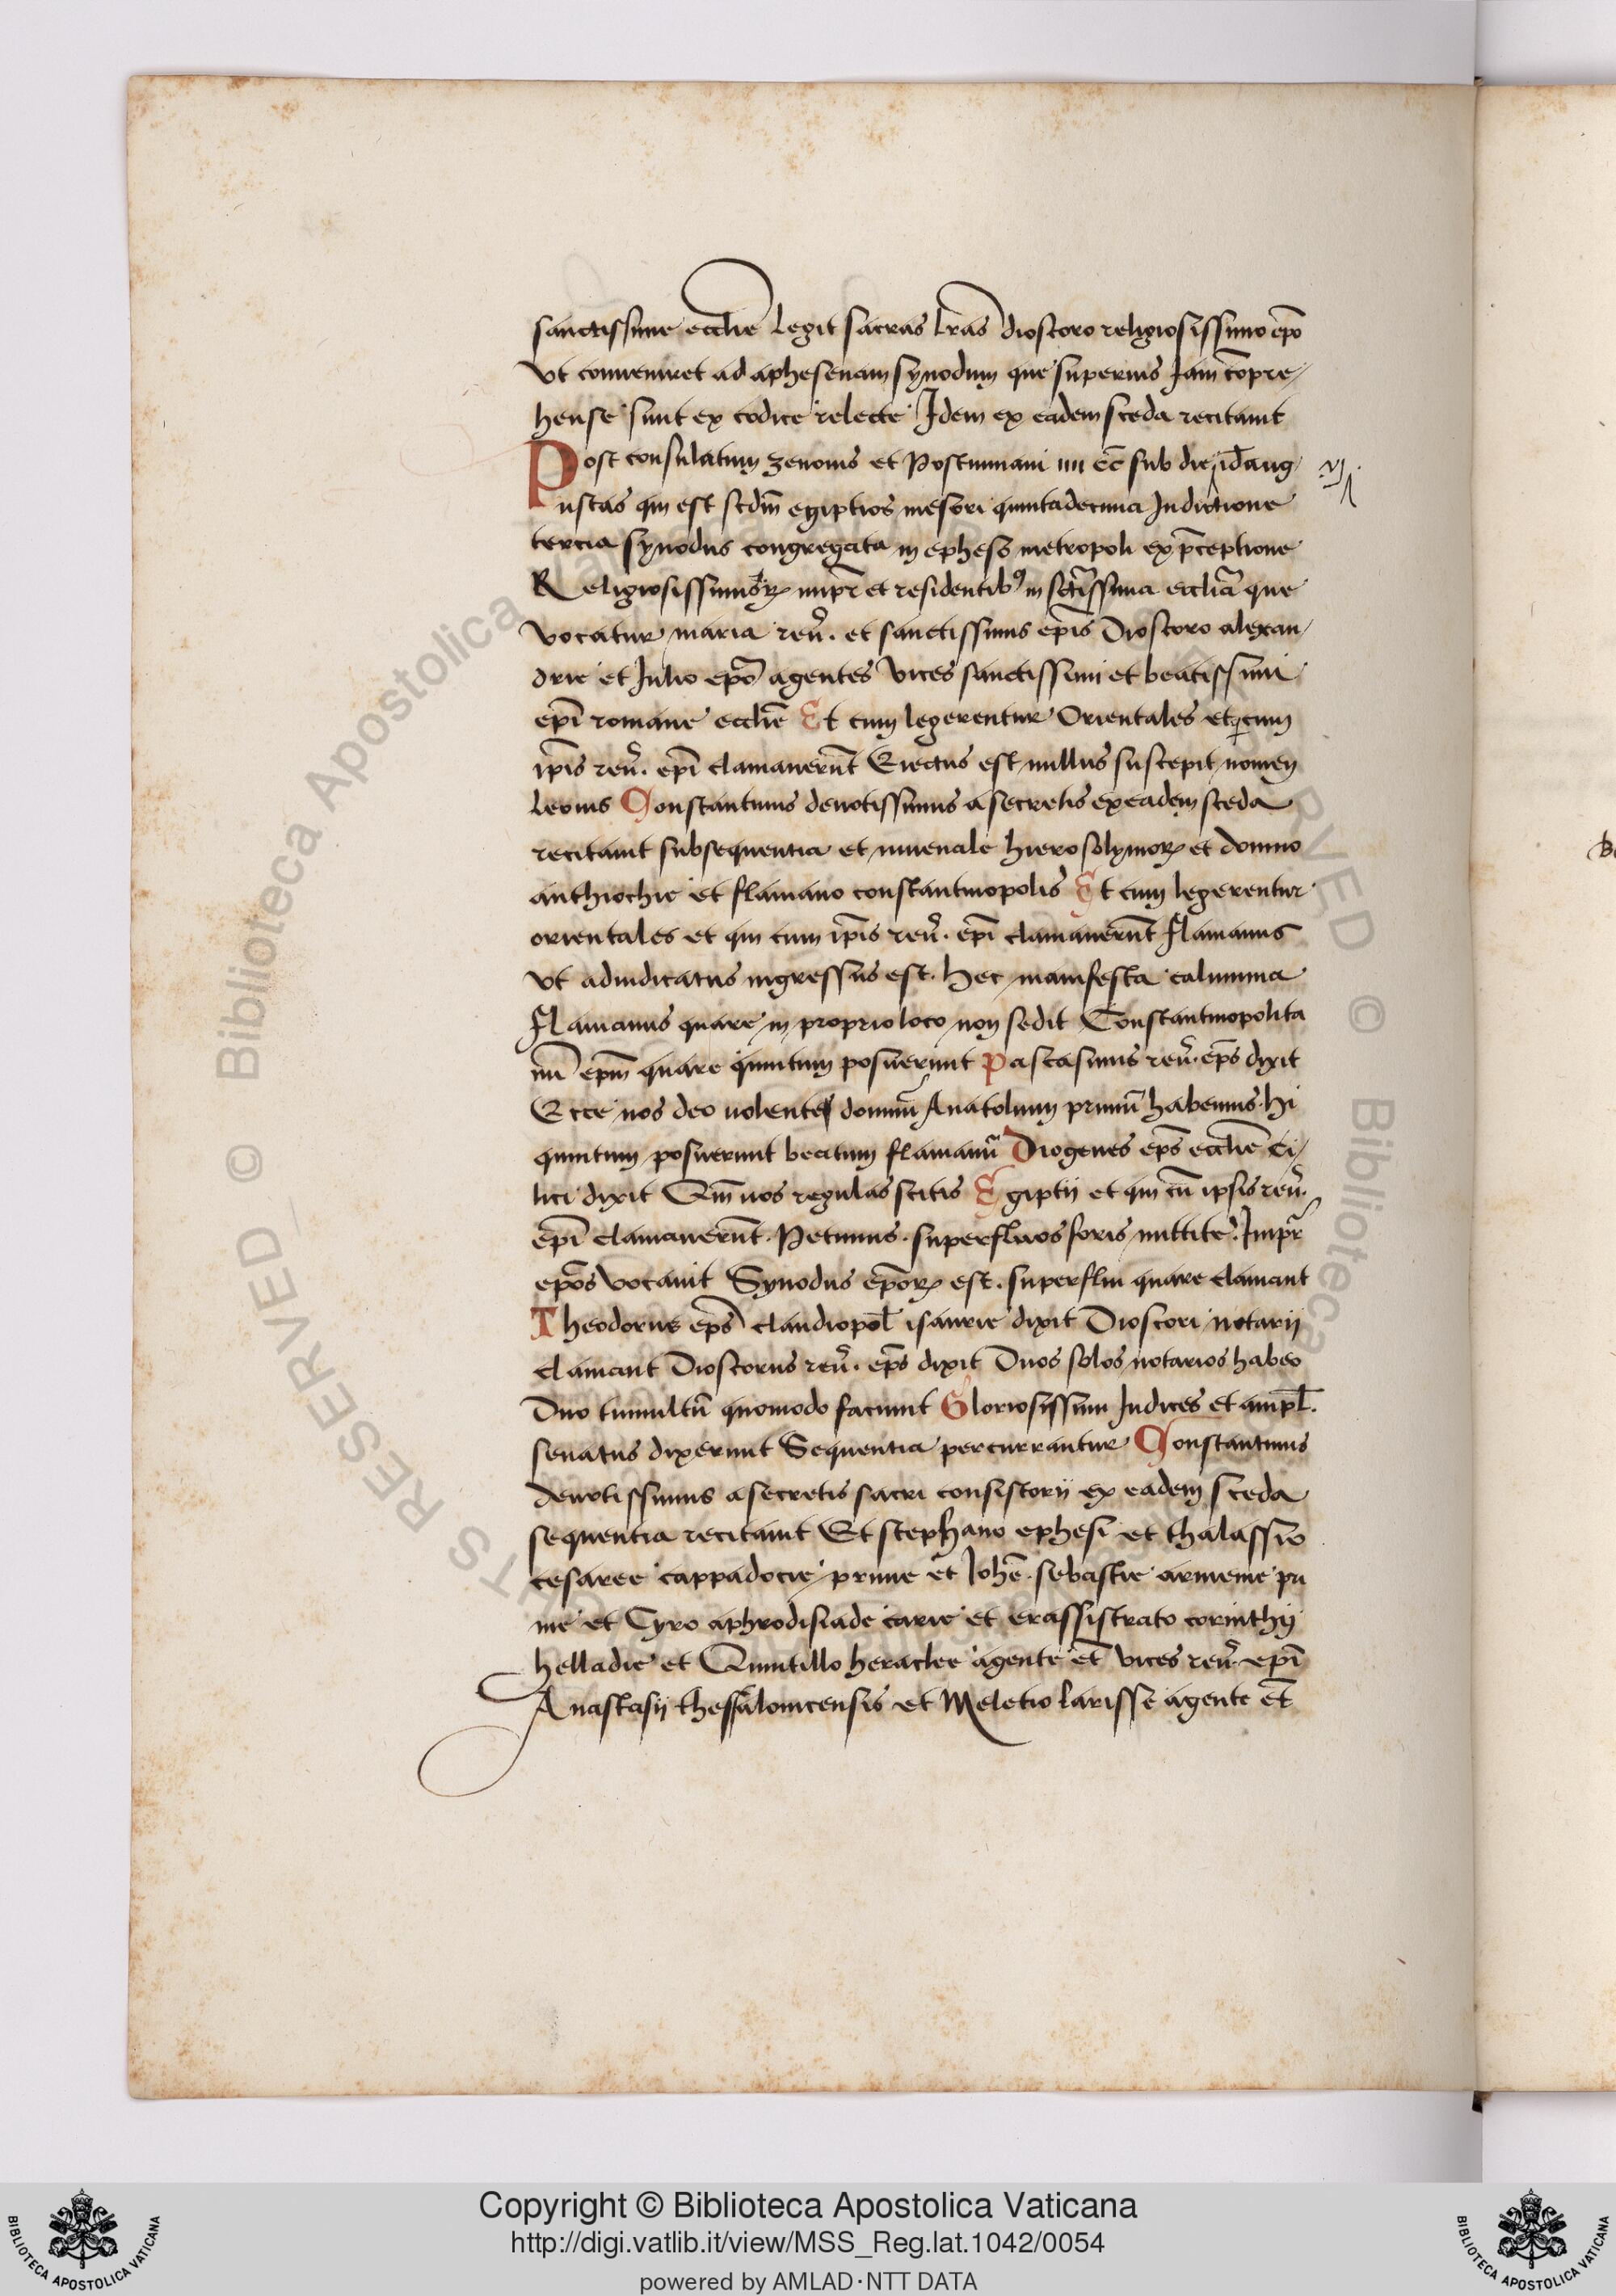 sanctissime ecclīe legit sacras lr̄as dioscoro religiosissimo ep̄o
vt conveniret ad aphesenam synodum que superius Jam cōpre/
hense sunt ex codice relecte Idem ex eadem sceda recitauit
Post consulatum zenonis et Postumiani iiii cc̄ sub die id̄ aug
vj
ustas qui est scdm̄ egiptios mesori quintadecima Indictione
tercia synodus congregata in epheso metropoli ex p̄ceptione
Religiosissimoꝝ imp̄r et residentibꝰ in sct̄issima eccliā que
vocatur maria reu̅. et sanctissimis ep̄is Dioscoro alexan/
drie et Julio ep̄o agentes vices sanctissimi et beatissimi
ep̄i romane ecclīe Et cum legerentur Orientales et cum
ip̄is reu̅. ep̄i clamauerūt Eiectus est nullus suscepit nomen
leonis Constantinus deuotissimus a secretis ex eadem sceda
recitauit subsequentia et iuuenale hierosolymoꝝ et domno
anthiochie et flauiano constantinopolis Et cum legerentur
orientales et qui cum ip̄is reu̅. ep̄i clamauerūt flauianus
vt adiudicatus ingressus est. hec manifesta calumnia
Flauianus quare in proprio loco non sedit Constantinopolita
nū ep̄m quare quintum posuerunt Pascasinus reu̅. ep̄s dixit
Ecce nos deo uolente domnū Anatolium primū habemus. hi
quintum posuerunt beatum flauianū Diogenes ep̄s ecclīe Ci/
lici dixit Qm̄ uos regulas scitis Egiptij et qui cū ipsis reu̅.
ep̄i clamauerūt. Petimus. superfluos foris mittite. Imp̄r
ep̄os vocauit Synodus ep̄oꝝ est. superflui quare clamant
Theodorus ep̄s claudiopol̄ isaurie dixit Dioscori notarij
clamant Dioscorus reu̅. ep̄s dixit Duos solos notarios habeo
Duo tumultū quomodo faciunt Gloriosissimi Iudices et ampl̄.
senatus dixerunt Sequentia percurrantur Constantinus
deuotissimus a secretis sacri consistorij ex eadem sceda
sequentia recitauit Et stephano ephesi et thalassio
cesaree cappadocie prime et Johē. sebastie armenie pri
me et Cyro aphrodisiade carie et erassistrato corinthij
helladie et Quintillo heraclee agente et̄ vices reu̅. ep̄i
Anastasij thessalonicensis et Meletio larisse agente et̄
Copyright © Biblioteca Apostolica Vaticana
http://digi.vatlib.it/view/MSS_Reg.lat.1042/0054
powered by AMLAD·NTT DATA